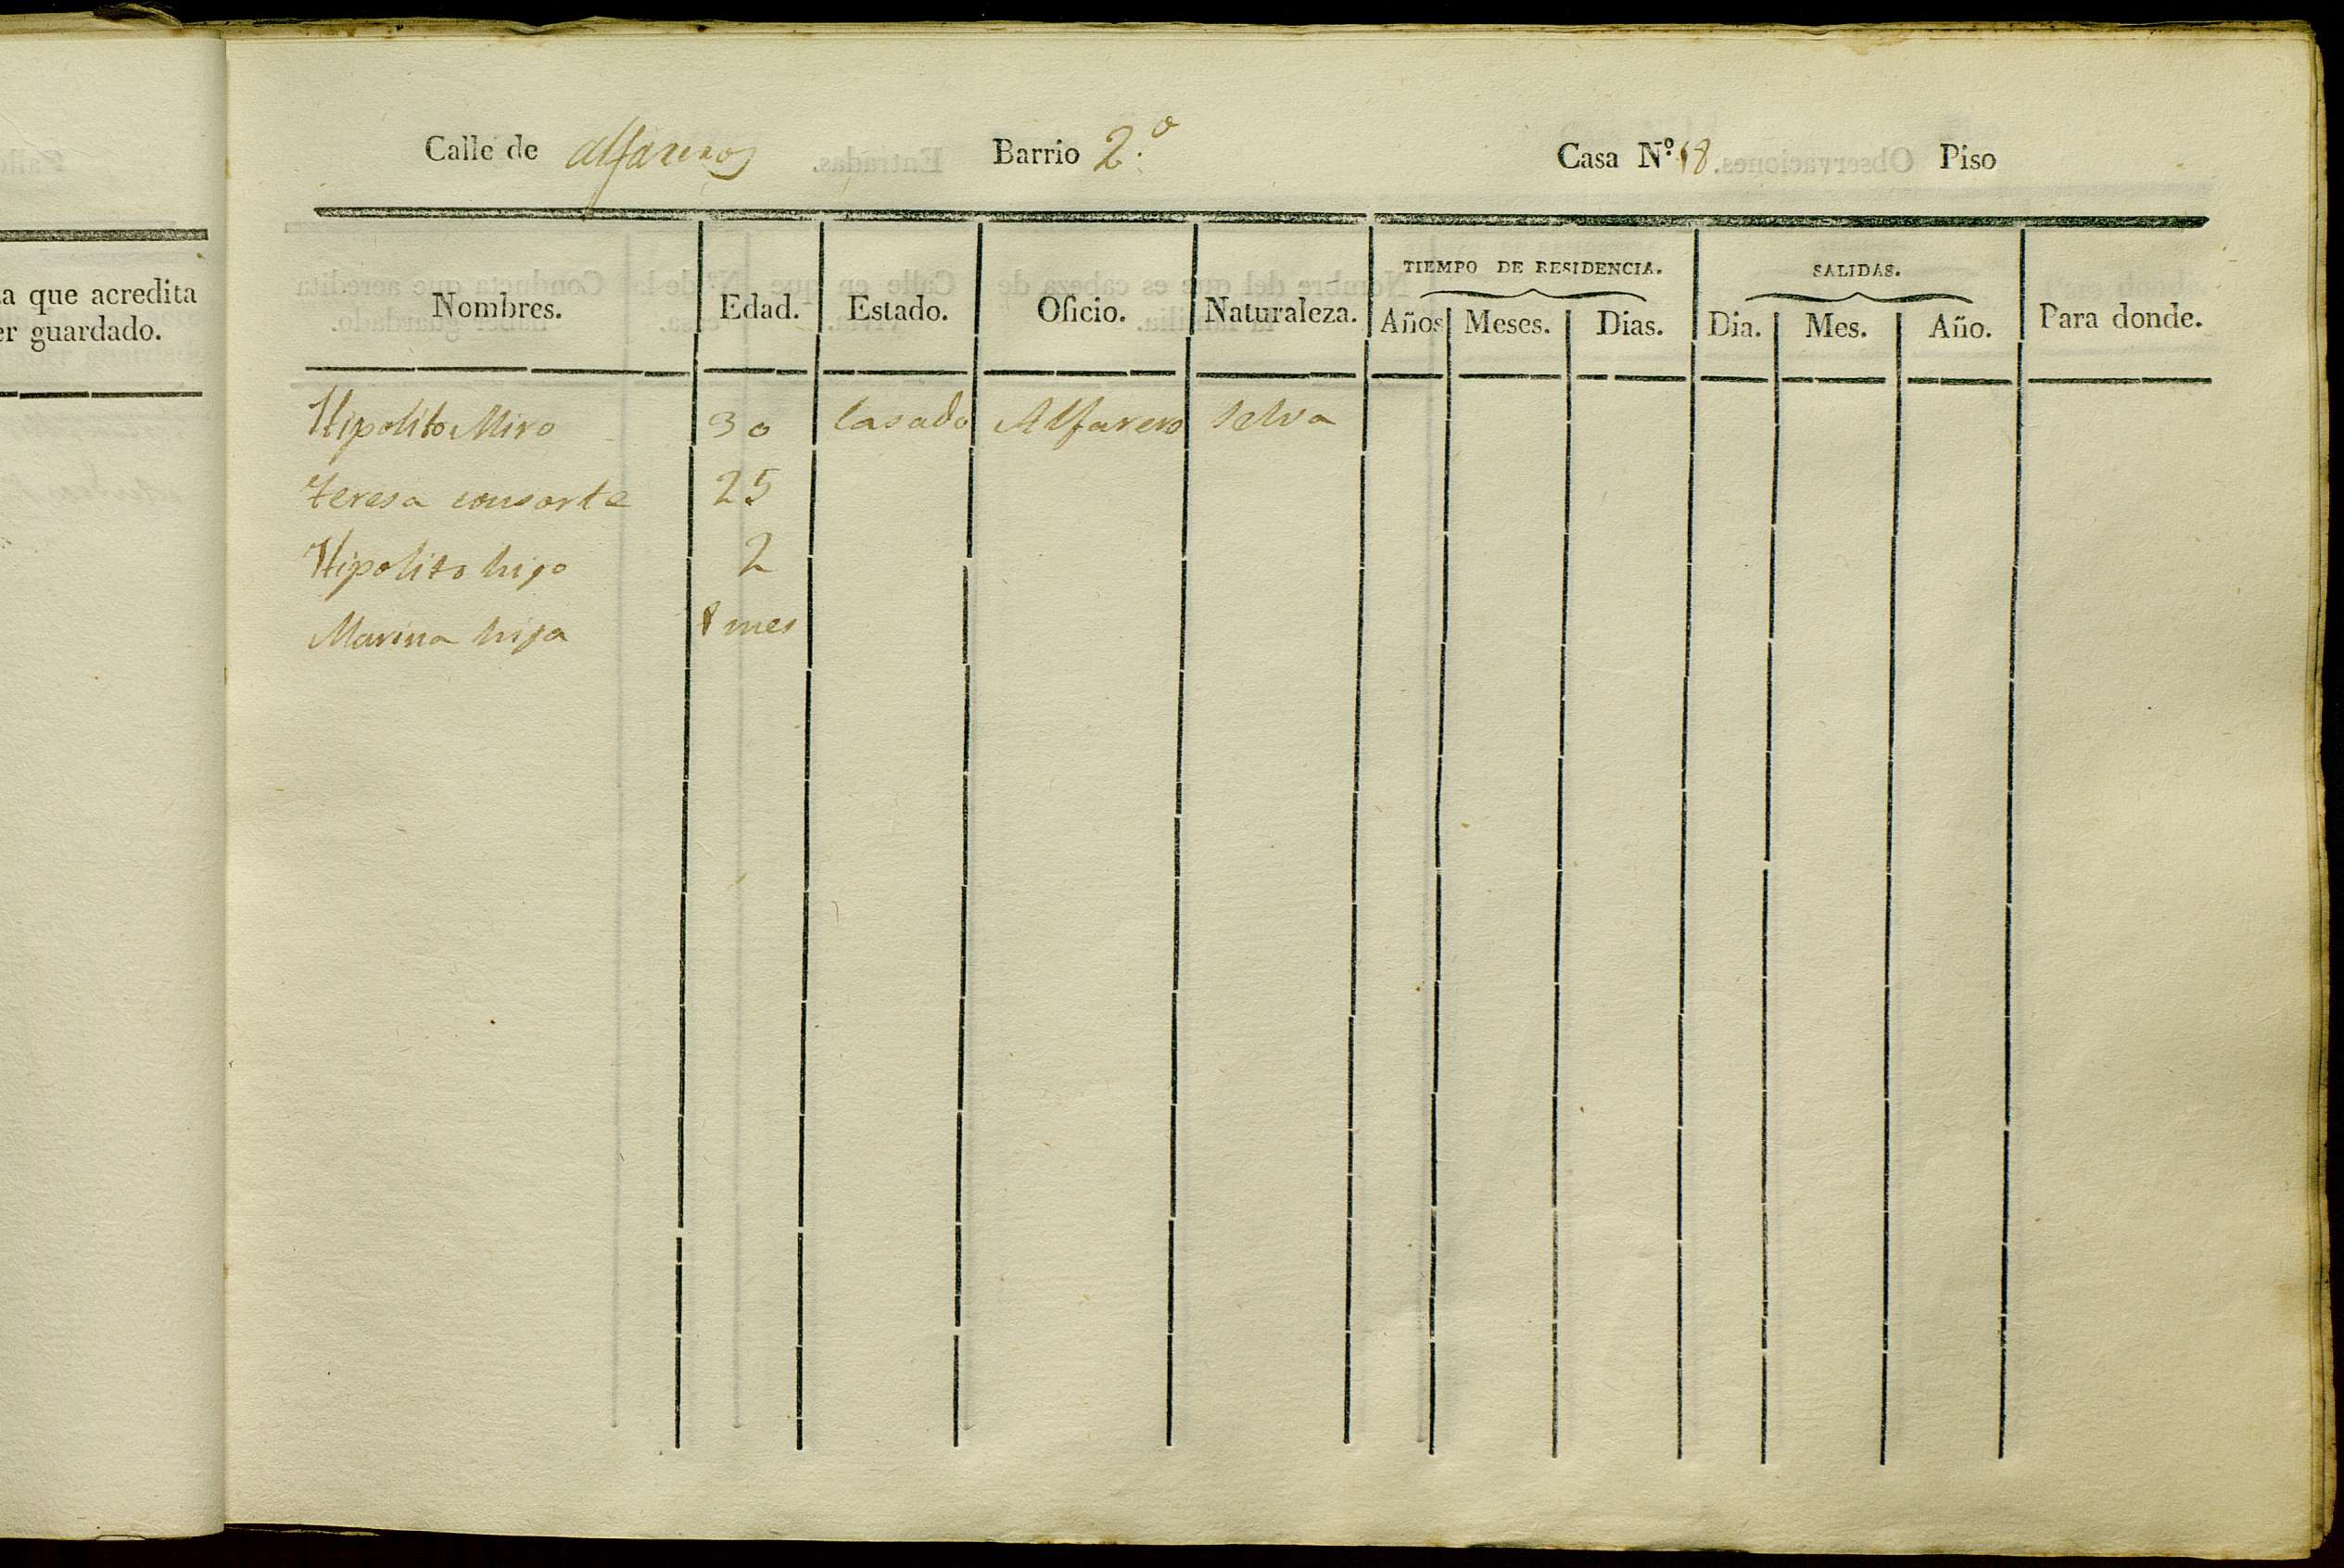 a que acredita
er guardado.
Calle de Alfareros Barrio 2.º Casa N.º 18. Piso
Nombres. Edad. Estado. Oficio. Naturaleza. TIEMPO DE RESIDENCIA. SALIDAS. Para donde.
Años Meses. Dias. Dia. Mes. Año.
Hipolito Miro 30 Casado Alfarero Selva
Teresa consorte 25
Hipolito hijo 2
Marina hija 8 mes